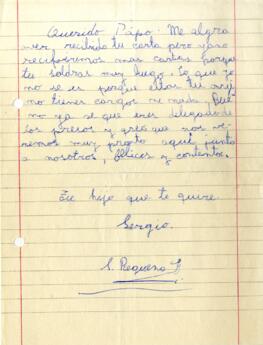 Querido Papo: Me algra
aver recibido tu carta pero ya no
recibiremos mas cartas porque
tu saldras muy luego. Lo que yo
no se es porque estas tu ay si
no tienes cargos ni nada, Bue
no ya se que eres delegado de
los presos y que nos ve
remos muy pronto aquí junto
a nosotros, felices y contentos.
Tu hijo que te quire.
Sergio.
S. Requena